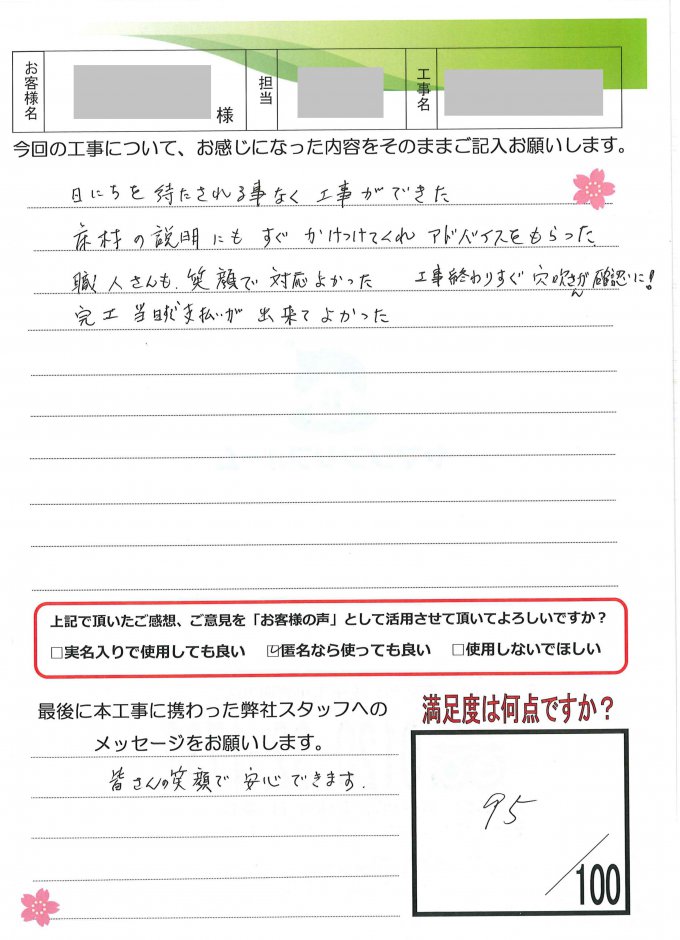 お客様名 様 担当 工事名
今回の工事について、お感じになった内容をそのままご記入お願いします。
日にちを待たされる事なく工事ができた
床材の説明にもすぐかけつけてくれアドバイスをもらった
職人さんも笑顔で対応よかった 工事終わりすぐ穴吹さんが確認に!
完工当日に支払いが出来てよかった
上記で頂いたご感想、ご意見を「お客様の声」として活用させて頂いてよろしいですか?
□実名入りで使用しても良い ☑匿名なら使っても良い □使用しないでほしい
最後に本工事に携わった弊社スタッフへの
メッセージをお願いします。
皆さんの笑顔で安心できます.
満足度は何点ですか?
95/100